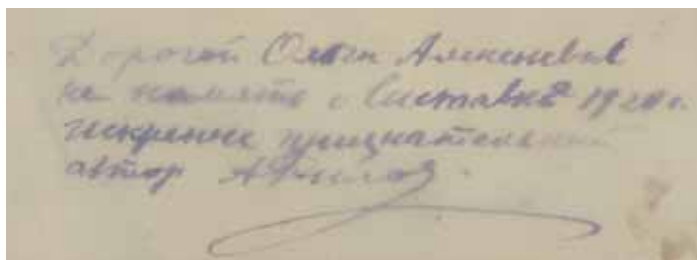 Дорогой Ольге Алексеевне
на память о выставке 1920 г.
искренне признательный
автор